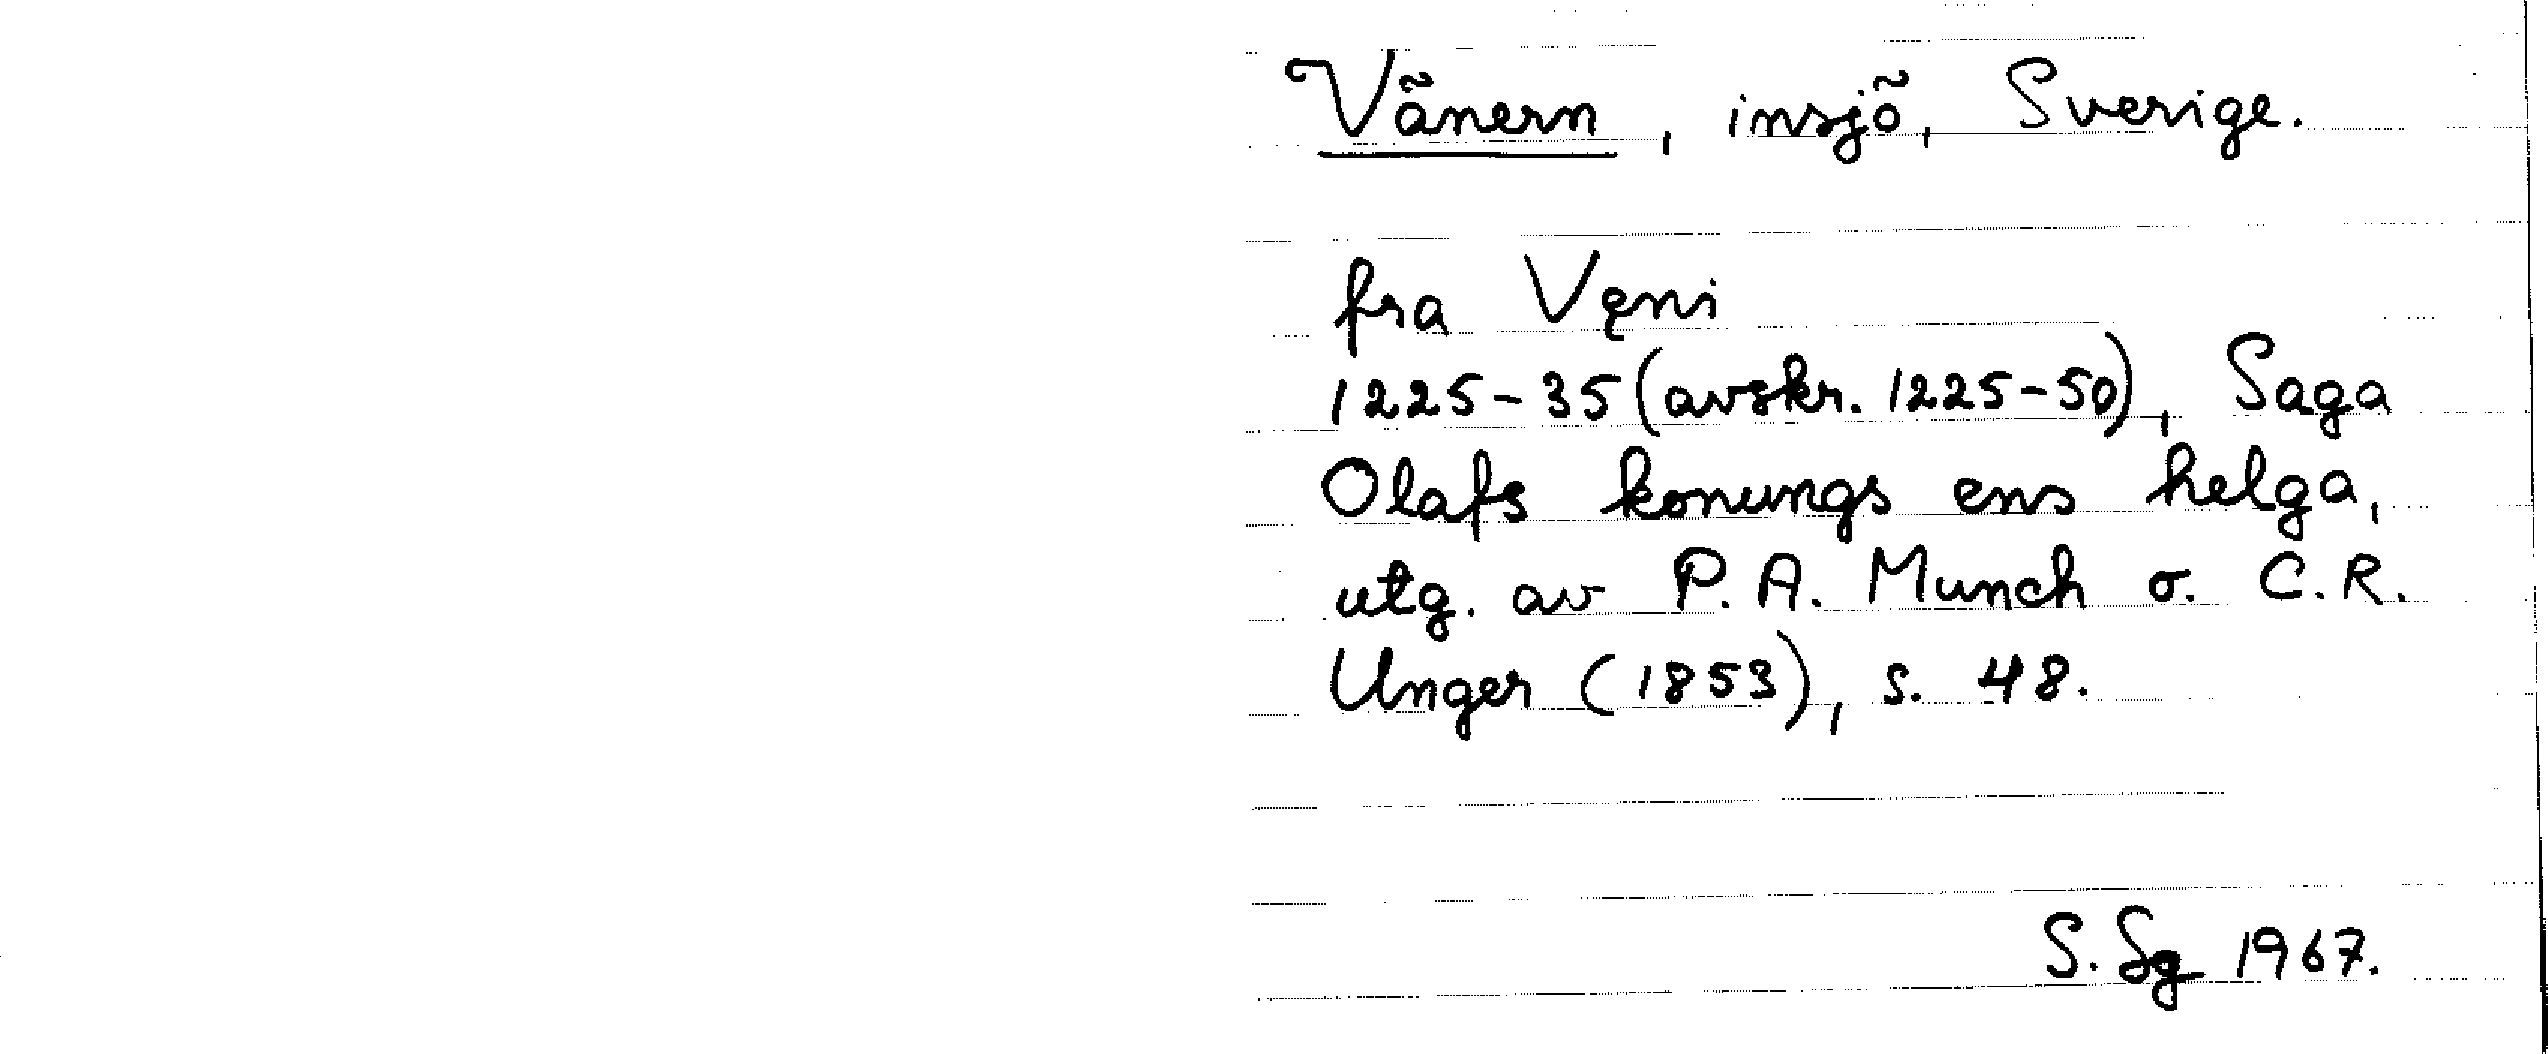 Vänern, insjö, Sverige.
fra Vęni
1225-35 (avskr. 1225-50), Saga
Olafs konungs ens helga,
utg. av P. A. Munch o. C. R.
Unger (1853), s. 48.
S. Sg 1967.